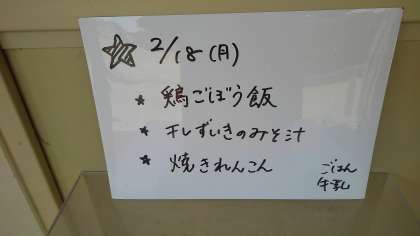 ☆ 2/18(月)
★ 鶏ごぼう飯
★ 干しずいきのみそ汁
★ 焼きれんこん
ごはん
牛乳